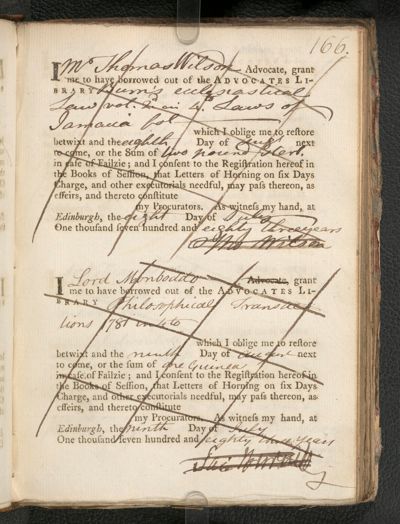 166.
I Mr Thomas Wilson Advocate, grant
me to have borrowed out of the ADVOCATES LI-
BRARY Burn's eclesiastical
Law vol. 2 in 4to Laws of
Jamaica fol
which I oblige me to restore
betwixt and the eighth Day of Augt next
to come, or the Sum of two pound Sterl.
in case of Failzie; and I consent to the Registration hereof in
the Books of Session, that Letters of Horning on six Days
Charge, and other executorials needful, may pass thereon, as
effeirs, and thereto constitute
my Procurators. As witness my hand, at
Edinburgh, the eight Day of July
One thousand seven hundred and eighty three years
Tho Wilson
I Lord Monboddo Advocate, grant
me to have borrowed out of the ADVOCATES LI-
BRARY Philosophical Transac
tions 1781 in 4to
which I oblige me to restore
betwixt and the ninth Day of august next
to come, or the sum of one Guinea
in case of Failzie; and I consent to the Registration hereof in
the Books of Session, that Letters of Horning on six Days
Charge, and other executorials needful, may pass thereon, as
effeirs, and thereto constitute
my Procurators. As witness my hand, at
Edinburgh, the ninth Day of July
One thousand seven hundred and eighty three years